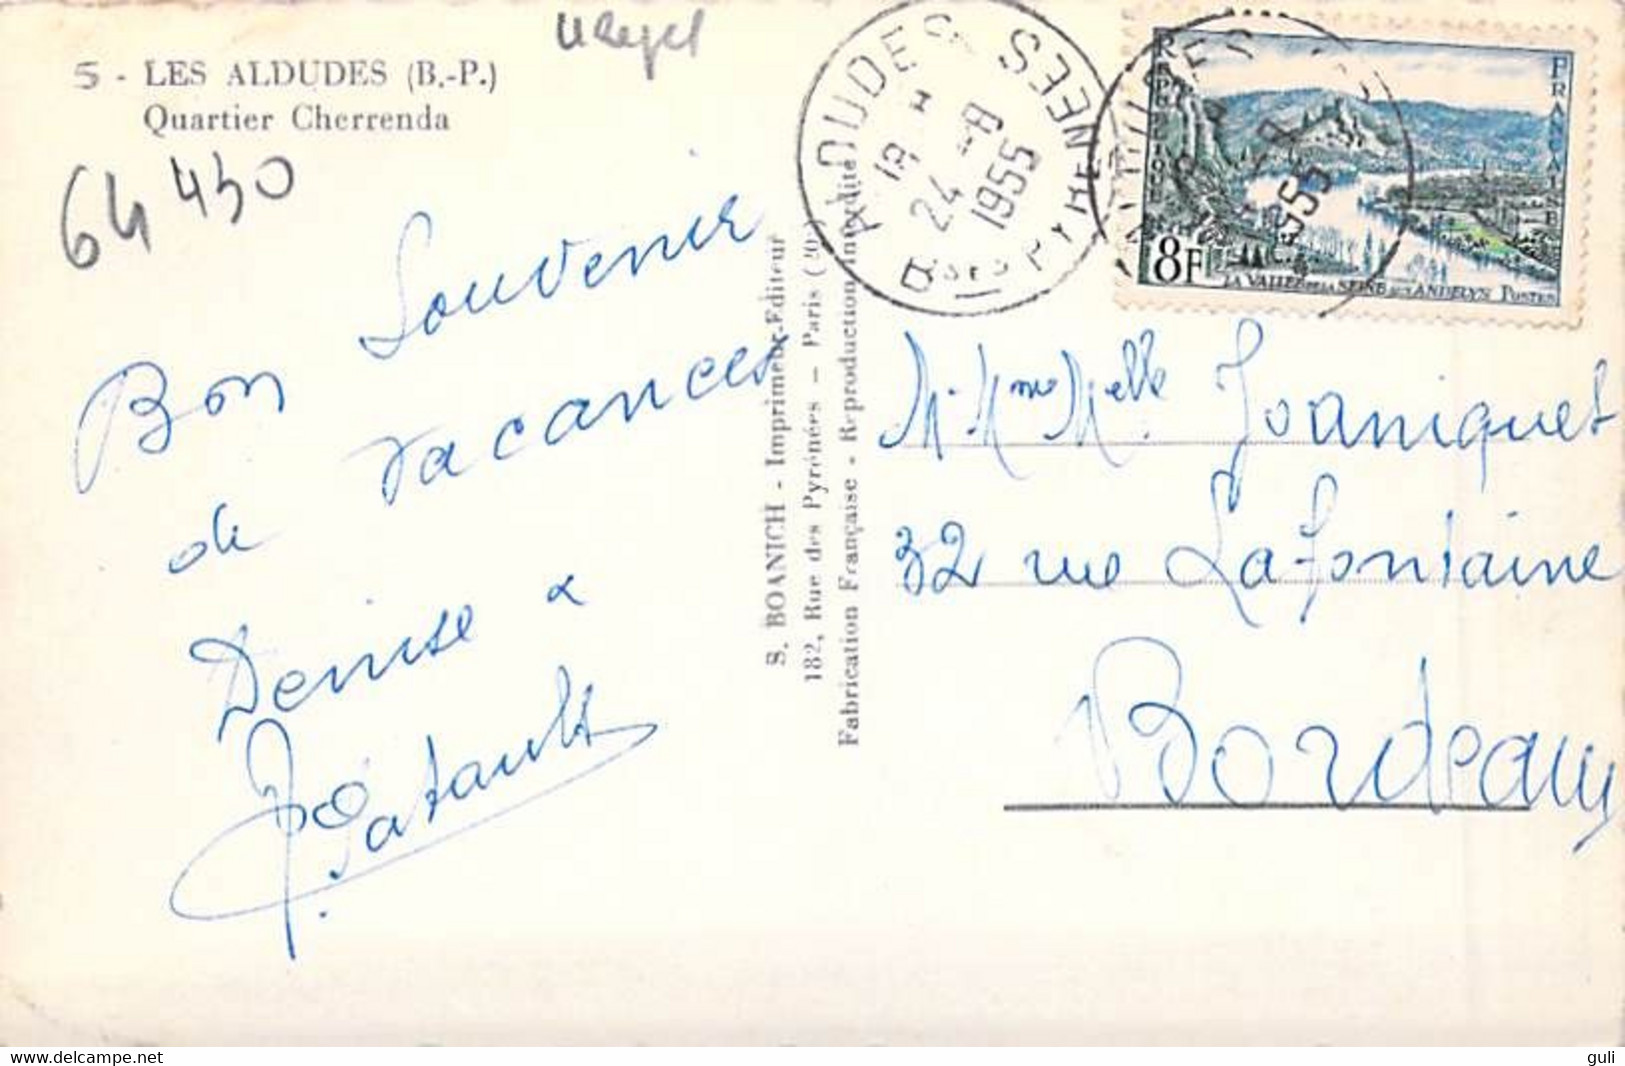 5 - LES ALDUDES (B.-P.)
Quartier Cherrenda
64 430
Bon Souvenir
de Vacances
Denise &
S. BOANICH - Imprimeur-Editeur
182, Rue des Pyrénées - Paris (20)
Fabrication Française - Reproduction Interdite
ALDUDES
18 H
24 -8
1955
BSES PYRENEES
REPUBLIQUE
FRANCAISE
8F
LA VALLEE DE LA SEINE AUX ANDELYS POSTES
M. Mme Melle Joaniquet
32 rue Lafontaine
Bordeaux
guli
www.delcampe.net